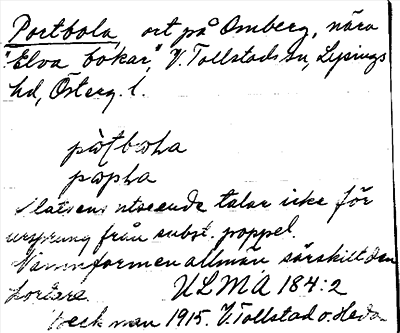 Portbola, ort på Omberg, nära
"Elva bokar", V. Tollstad sn, Lysings
hd, Österg. l.
Platsens utseende talar icke för
ursprung från subst. poppel.
Namnformen allmän särskilt den
kortare ULMA 184:2
1915. V. Tollstad o. Heda